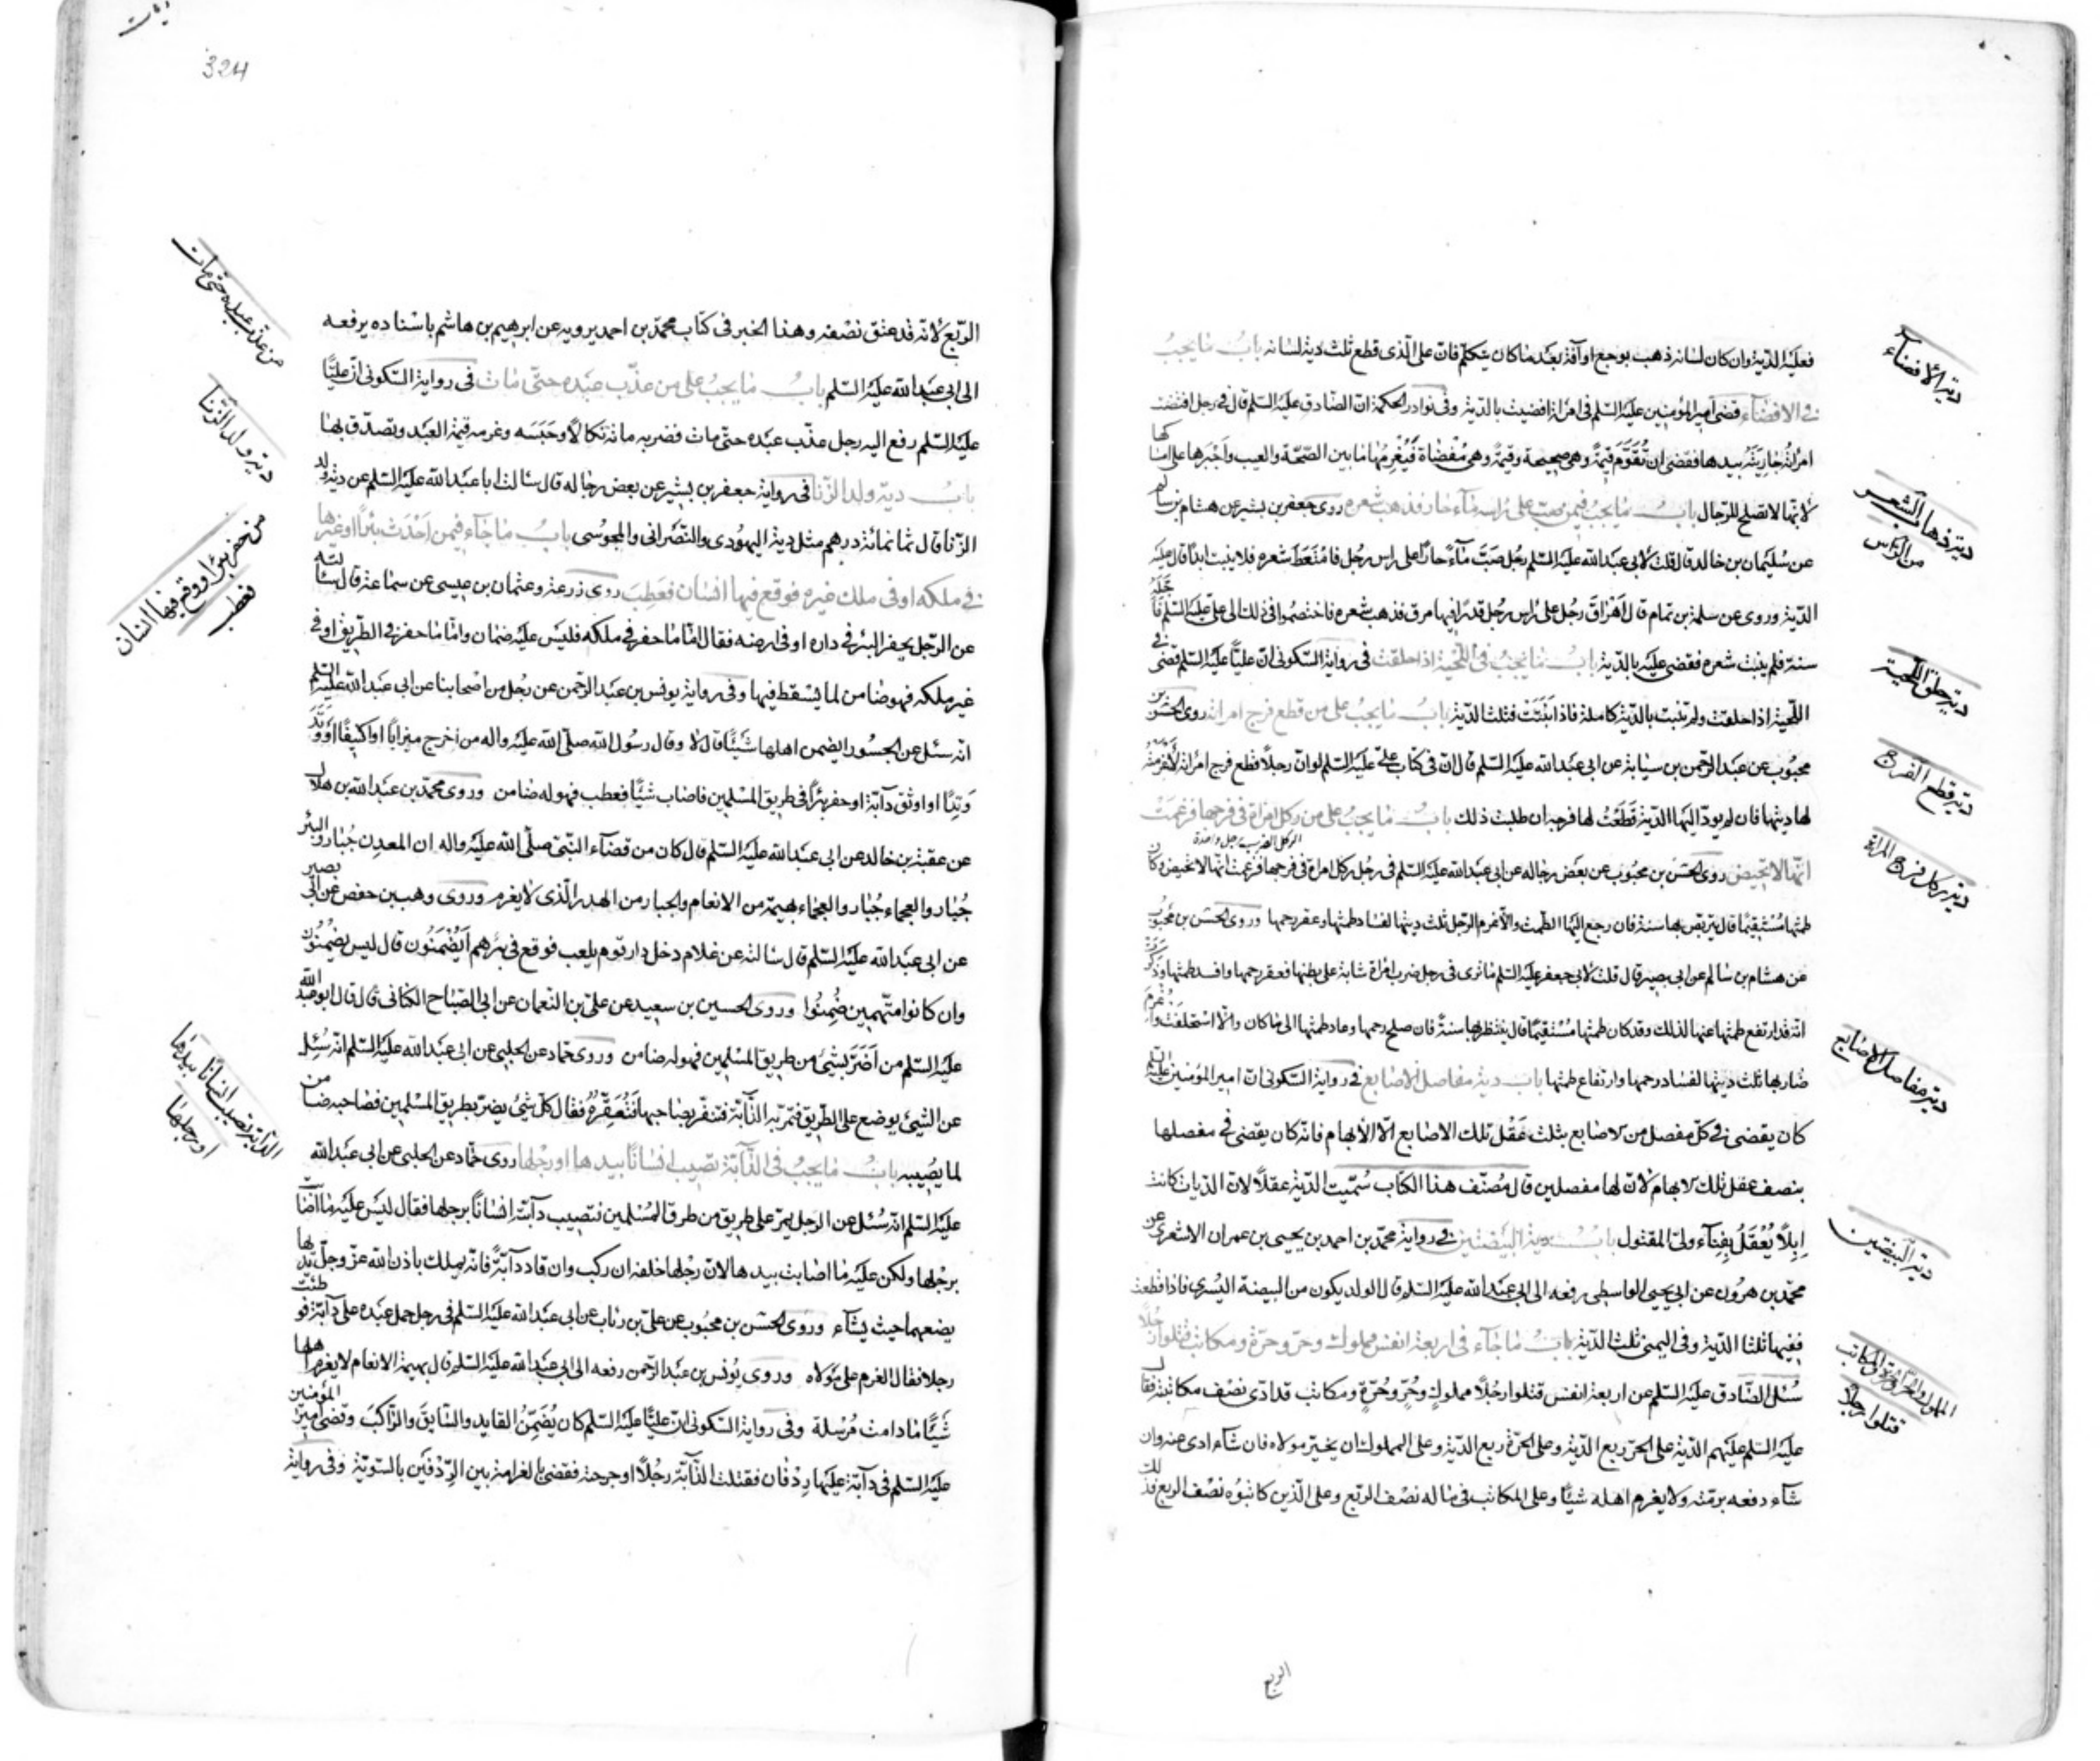 فعليه الدية وان كان لسانه ذهب بوجع او آفة بعد ما كان يتكلم فان على الذى قطع ثلث دية لسانه باب ما يجب
فى الافضاء قضى امير المؤمنين عليه السلم فى امرأة افضيت بالدية وفى نوادر الحكمة ان الصادق عليه السلم قال فى رجل افتضت
امرأته جاريته بيدها فقضى ان تقوّم قيمة وهى صحيحة وقيمة وهى مفضاة فيغرمها ما بين الصحة والعيب واجبرها على امساكها
لانها لا تصلح للرجال باب ما يجب فيمن صبّ على راسه ماء حار فذهب شعره روى جعفر بن بشير عن هشام بن سالم
عن سليمان بن خالد قال قلت لابى عبد الله عليه السلم رجل صبّ ماء حارا على راس رجل فامتعط شعره فلا ينبت ابدا قال عليه
الدية وروى عن سلمة بن تمام قال اهراق رجل على راس رجل قدرا فيها مرق فذهب شعره فاختصموا فى ذلك الى على عليه السلم فاجله
سنة فلم ينبت شعره فقضى عليه بالدية باب ما يجب فى اللحية اذا حلقت فى رواية السكونى ان عليا عليه السلم قضى فى
اللحية اذا حلقت ولم تنبت بالدية كاملة فاذا انبتت فثلث الدية باب ما يجب على من قطع فرج امراته روى الحسن بن
محبوب عن عبد الرحمن بن سيابة عن ابى عبد الله عليه السلم قال ان فى كتاب على عليه السلم لو ان رجلا قطع فرج امراته لاغرمته
لها ديتها فان لم يودّ اليها الدية قطعت لها فرجه ان طلبت ذلك باب ما يجب على من ركل امراة فى فرجها فزعمت
الركل الضرب برجل واحدة
انها لا تحيض روى الحسن بن محبوب عن بعض رجاله عن ابى عبد الله عليه السلم فى رجل ركل امراة فى فرجها فزعمت انها لا تحيض وكان
طمثها مستقيما قال يتربص بها سنة فان رجع اليها الطمث والا غرم الرجل ثلث ديتها لفساد طمثها وعقر رحمها وروى الحسن بن محبوب
عن هشام بن سالم عن ابى بصير قال قلت لابى جعفر عليه السلم ما ترى فى رجل ضرب امراة شابة على بطنها فعقر رحمها وافسد طمثها وذكرت
انه قد ارتفع طمثها عنها لذلك وقد كان طمثها مستقيما قال ينتظر بها سنة فان صلح رحمها وعاد طمثها الى ما كان والا استحلفت واغرم
ضاربها ثلث ديتها لفساد رحمها وارتفاع طمثها باب دية مفاصل الاصابع فى رواية السكونى ان امير المؤمنين عليه
كان يقضى فى كل مفصل من الاصابع بثلث عقل تلك الاصابع الا الابهام فانه كان يقضى فى مفصلها
بنصف عقل تلك الابهام لان لها مفصلين قال مصنف هذا الكتاب سميت الدية عقلا لان الديات كانت
ابلا يعقل بفناء ولى المقتول باب دية البيضتين فى رواية محمد بن احمد بن يحيى بن عمران الاشعرى عن
محمد بن هرون عن ابى يحيى الواسطى رفعه الى ابى عبد الله عليه السلم قال الولد يكون من البيضة اليسرى فاذا قطعت
ففيها ثلثا الدية وفى اليمنى ثلث الدية باب ما جاء فى اربعة انفس مملوك وحر وحرة ومكاتب قتلوا رجلا
سئل الصادق عليه السلم عن اربعة انفس قتلوا رجلا مملوك وحر وحرة ومكاتب قد ادى نصف مكاتبته فقال
عليه السلم عليهم الدية على الحر ربع الدية وعلى الحرة ربع الدية وعلى المملوك ان يخير مولاه فان شاء ادى عنه وان
شاء دفعه برمته ولا يغرم اهله شيئا وعلى المكاتب فى ماله نصف الربع وعلى الذين كاتبوه نصف الربع فذلك
الربع
دية الافضاء
دية ذهاب الشعر
من الراس
دية حلق اللحية
دية قطع الفرج
دية ركل فرج المراة
دية مفاصل الاصابع
دية البيضتين
قتلوا رجلا
324
الربع لانه قد عتق نصفه وهذا الخبر فى كتاب محمد بن احمد يرويه عن ابرهيم بن هاشم باسناده يرفعه
الى ابى عبد الله عليه السلم باب ما يجب على من عذّب عبده حتى مات فى رواية السكونى ان عليا
عليه السلم رفع اليه رجل عذب عبده حتى مات فضربه مائة نكالا وحبسه وغرمه قيمة العبد وتصدق بها
باب دية ولد الزنا فى رواية جعفر بن بشير عن بعض رجاله قال سالت ابا عبد الله عليه السلم عن دية ولد
الزنا قال ثمانمائة درهم مثل دية اليهودى والنصرانى والمجوسى باب ما جاء فيمن احدث بئرا او غيرها
فى ملكه او فى ملك غيره فوقع فيها انسان فعطب روى زرعة وعثمان بن عيسى عن سماعة قال سالته
عن الرجل يحفر البئر فى داره او فى ارضه فقال اما ما حفر فى ملكه فليس عليه ضمان واما ما حفر فى الطريق او فى
غير ملكه فهو ضامن لما يسقط فيها وفى رواية يونس بن عبد الرحمن عن رجل من اصحابنا عن ابى عبد الله عليه السلم
انه سئل عن الجسور ايضمن اهلها شيئا قال لا وقال رسول الله صلى الله عليه واله من اخرج ميزابا او كنيفا او وتد
وتدا او اوثق دابة او حفر بئرا فى طريق المسلمين فاصاب شيئا فعطب فهو له ضامن وروى محمد بن عبد الله بن هلال
عن عقبة بن خالد عن ابى عبد الله عليه السلم قال كان من قضاء النبى صلى الله عليه واله ان المعدن جبار والبئر
جبار والعجماء جبار والعجماء بهيمة من الانعام والجبار من الهدر الذى لا يغرم وروى وهيب بن حفص عن ابى بصير
عن ابى عبد الله عليه السلم قال سالته عن غلام دخل دار قوم يلعب فوقع فى بئرهم ايضمنون قال ليس يضمنون
وان كانوا متهمين ضمنوا وروى الحسين بن سعيد عن على بن النعمان عن ابى الصباح الكنانى قال قال ابو عبد الله
عليه السلم من اضرّ بشئ من طريق المسلمين فهو له ضامن وروى حماد عن الحلبى عن ابى عبد الله عليه السلم انه سئل
عن الشئ يوضع على الطريق فتمر به الدابة فتنفر بصاحبها فتعقره فقال كل شئ يضر بطريق المسلمين فصاحبه ضامن
لما يصيبه باب ما يجب فى الدابة تصيب انسانا بيدها او رجلها روى حماد عن الحلبى عن ابى عبد الله
عليه السلم انه سئل عن الرجل يمر على طريق من طرق المسلمين فتصيب دابته انسانا برجلها فقال ليس عليه ما اصابت
برجلها ولكن عليه ما اصابت بيدها لان رجلها خلفه ان ركب وان قاد دابة فانه يملك باذن الله عز وجل يدها
يضعها حيث يشاء وروى الحسن بن محبوب عن على بن رئاب عن ابى عبد الله عليه السلم فى رجل حمل عبده على دابة فوطئت
رجلا فقال الغرم على مولاه وروى يونس بن عبد الرحمن رفعه الى ابى عبد الله عليه السلم قال بهيمة الانعام لا يغرم اهلها
شيئا ما دامت مرسلة وفى رواية السكونى ان عليا عليه السلم كان يضمن القايد والسايق والراكب وقضى امير المؤمنين
عليه السلم فى دابة عليها ردفان فقتلت الدابة رجلا او جرحته فقضى بالغرامة بين الردفين بالسوية وفى رواية
من عذب عبده حتى مات
دية ولد الزنا
من حفر بئرا ووقع فيها انسان
فعطب
الدابة تصيب انسانا بيدها
او رجلها